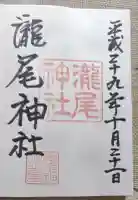 平成二十九年十月二十一日
瀧尾神社
瀧尾神社